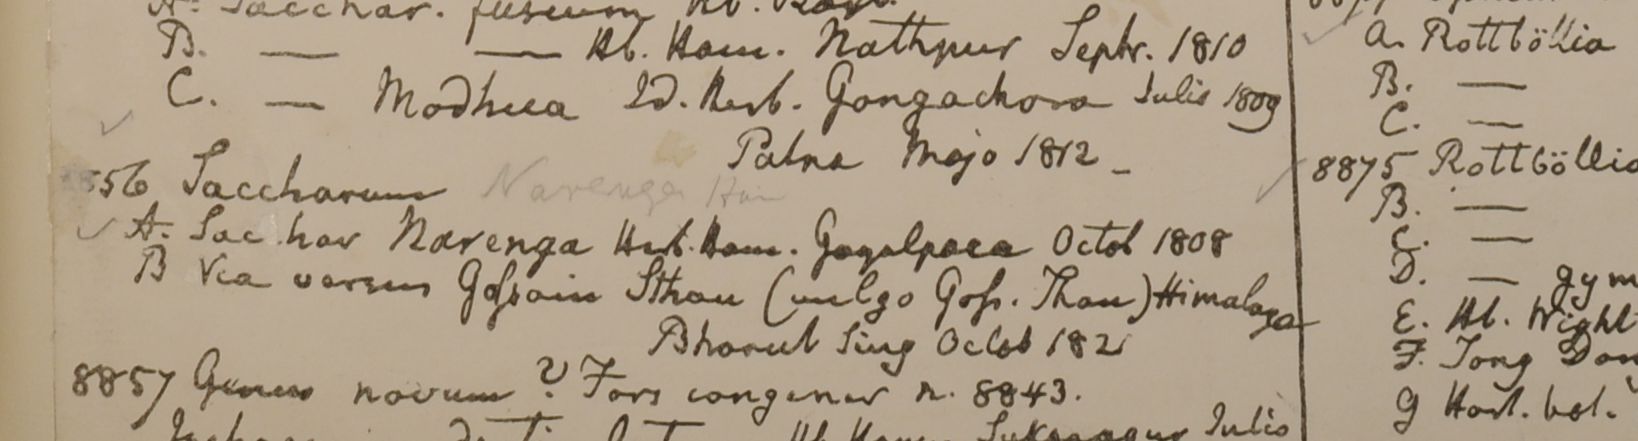 A. Sacchar. fuscum Hb. Roxb.
B. — — Hb. Ham. Nathpur Septr. 1810
C. — Modhua Id. Herb. Gongachora Julio 1809
Patna Majo 1812 –
8856 Saccharum Narenga Ham
A. Sacchar Narenga Herb. Ham. Goyalpara Octob 1808
B Via versus Gossain Sthan (vulgo Goss. Than) Himalaya
Bharut Sing Octob 1821
8857 Genus novum? Fors congener n. 8843.
Hb. Ham. Sukanagur Julio
A. Rottböllia
B. —
C. —
8875 Rottböllia
B. —
C. —
D. — gym
E. Hb. Wight
F. Tong Dong
G Hort. bot.